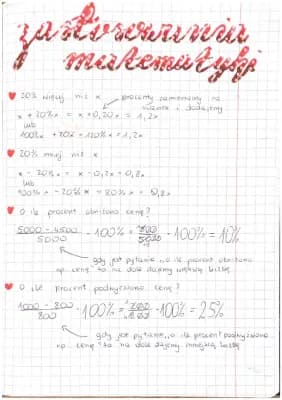 zastosowania
matematyki
20% więcej niż x
procenty zamieniamy na
ułamek i dodajemy
x + 20% x = x + 0,20x = 1,2x
lub
100% x + 20% x = 120% x = 1,2x
20% mniej niż x
x - 20% x = x - 0,2x = 0,8x
lub
100% x - 20% x = 80% x = 0,8x
O ile procent obniżono cenę?
5000 - 4500 / 5000 · 100% = 500 / 5000 · 100% = 10%
gdy jest pytanie „o ile procent obniżono
np. cenę" to na dole dajemy większą liczbę
O ile procent podwyższono cenę?
1000 - 800 / 800 · 100% = 200 / 800 · 100% = 25%
gdy jest pytanie „o ile procent podwyższono
np. cenę" to na dole dajemy mniejszą liczbę